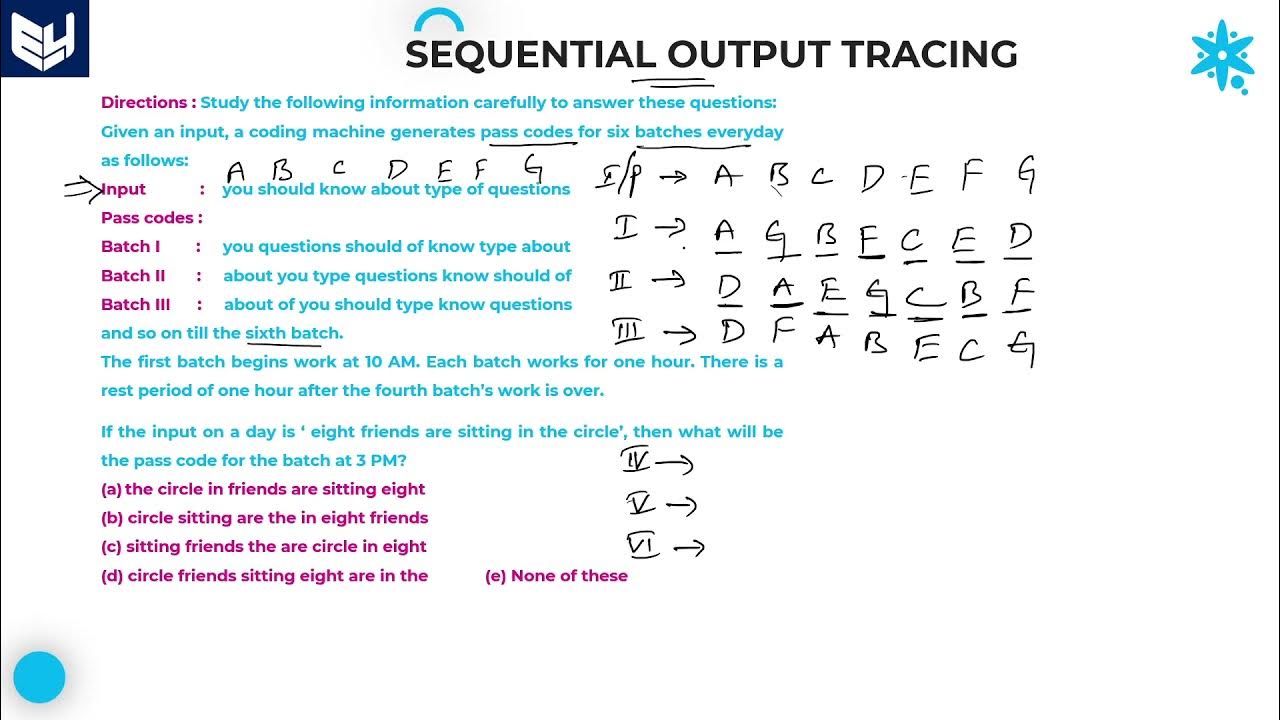 SEQUENTIAL OUTPUT TRACING
Directions : Study the following information carefully to answer these questions:
Given an input, a coding machine generates pass codes for six batches everyday
as follows:
A B C D E F G
Input : you should know about type of questions
I/P → A B C D E F G
Pass codes :
Batch I : you questions should of know type about
I → A G B F C E D
Batch II : about you type questions know should of
II → D A E G C B F
Batch III : about of you should type know questions
III → D F A B E C G
and so on till the sixth batch.
The first batch begins work at 10 AM. Each batch works for one hour. There is a
rest period of one hour after the fourth batch's work is over.
If the input on a day is ‘ eight friends are sitting in the circle’, then what will be
the pass code for the batch at 3 PM?
IV →
(a) the circle in friends are sitting eight
V →
(b) circle sitting are the in eight friends
(c) sitting friends the are circle in eight
VI →
(d) circle friends sitting eight are in the (e) None of these